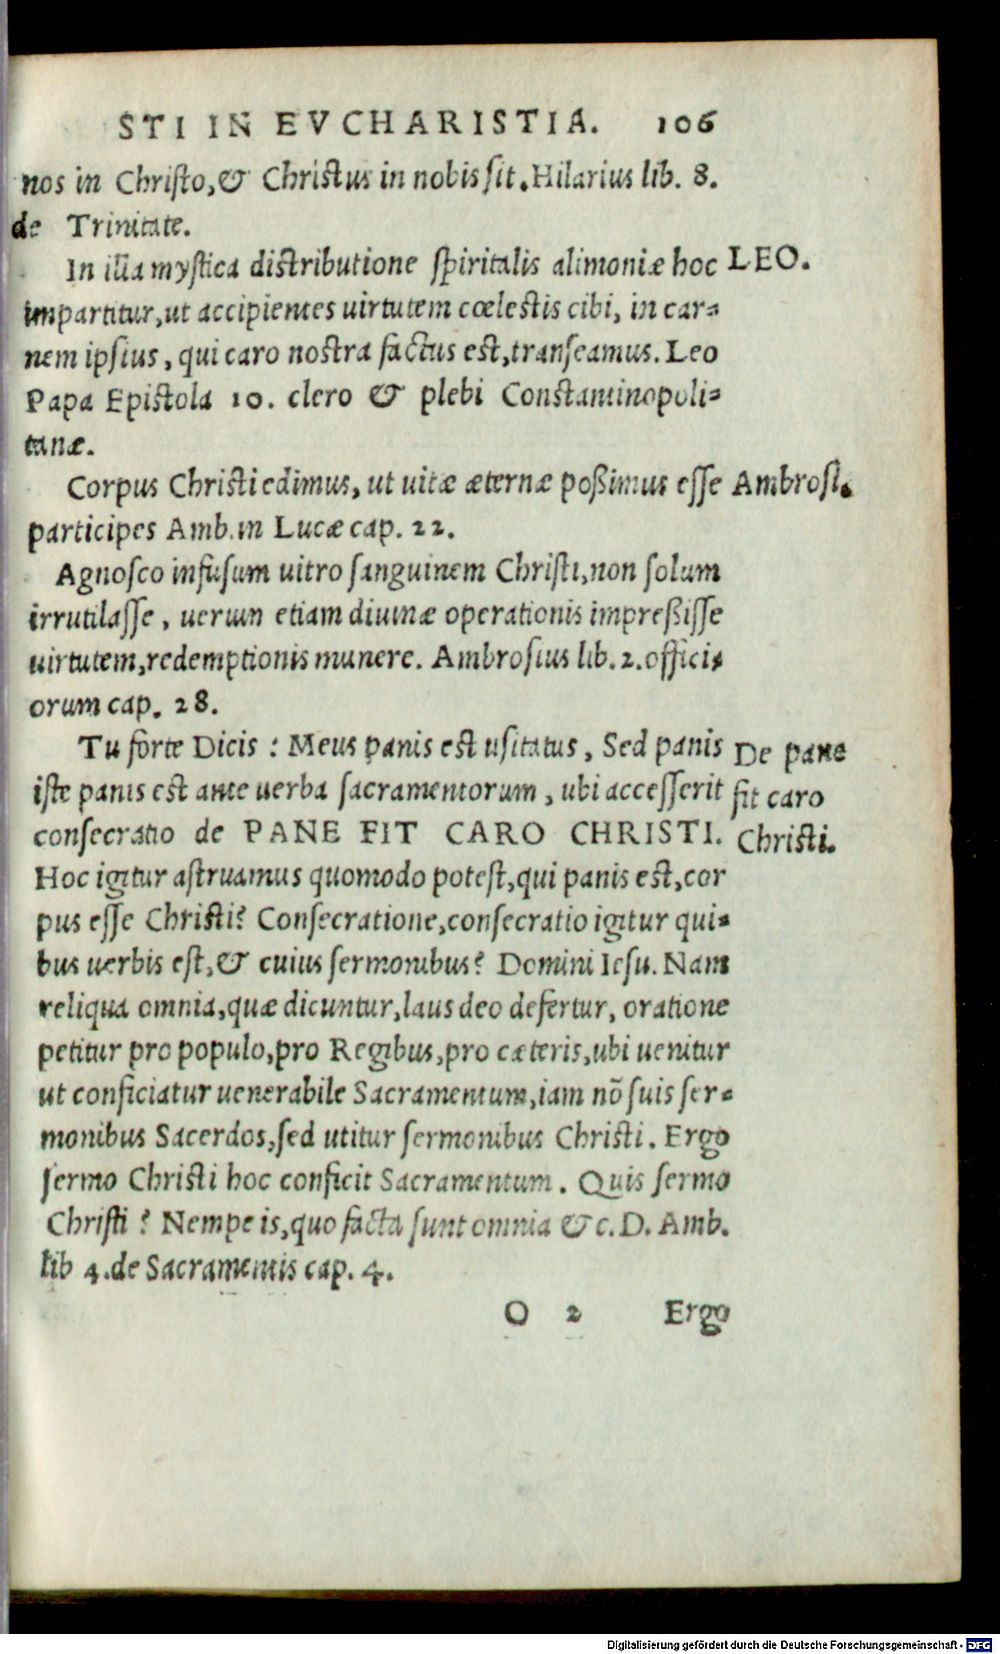 STI IN EVCHARISTIA. 106
nos in Christo, & Christus in nobis sit. Hilarius lib. 8.
de Trinitate.
In illa mystica distributione spiritalis alimoniæ hoc LEO.
impartitur, ut accipientes uirtutem cœlestis cibi, in car-
nem ipsius, qui caro nostra factus est, transeamus. Leo
Papa Epistola 10. clero & plebi Constantinopoli-
tanæ.
Corpus Christi edimus, ut uitæ æternæ poßimus esse Ambrosi.
participes Amb. in Lucæ cap. 22.
Agnosco infusum uitro sanguinem Christi, non solum
irrutilasse, uerum etiam diuinæ operationis impreßisse
uirtutem, redemptionis munere. Ambrosius lib. 2. offici-
orum cap. 28.
Tu forte Dicis : Meus panis est usitatus, Sed panis De pane
iste panis est ante uerba sacramentorum, ubi accesserit fit caro
consecratio de PANE FIT CARO CHRISTI. Christi.
Hoc igitur astruamus quomodo potest, qui panis est, cor
pus esse Christi? Consecratione, consecratio igitur qui-
bus uerbis est, & cuius sermonibus? Domini Iesu. Nam
reliqua omnia, quæ dicuntur, laus deo defertur, oratione
petitur pro populo, pro Regibus, pro cæteris, ubi uenitur
ut conficiatur uenerabile Sacramentum, iam nõ suis ser-
monibus Sacerdos, sed utitur sermonibus Christi. Ergo
sermo Christi hoc conficit Sacramentum. Quis sermo
Christi ? Nempe is, quo facta sunt omnia &c. D. Amb.
lib 4. de Sacramentis cap. 4.
O 2 Ergo
Digitalisierung gefördert durch die Deutsche Forschungsgemeinschaft - DFG